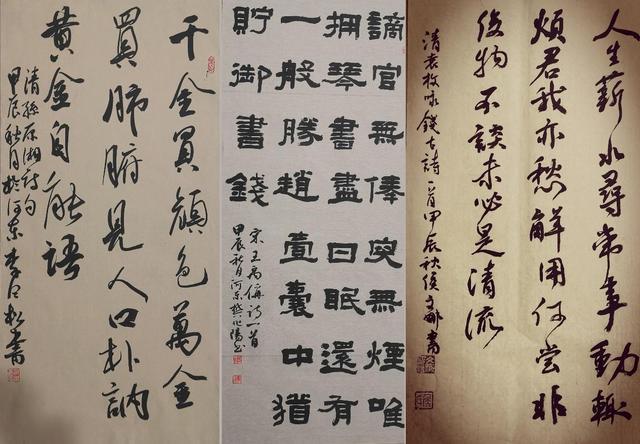 千金買顔色萬金
買肺腑見人口朴訥
黄金自能語
清孫原湘詩句
甲辰秋月於河東李松書
謫官無俸突無煙唯
擁琴書盡日眠還有
一般勝趙壹囊中猶
貯御書錢
宋王禹偁詩一首
甲辰秋月河東樊陽書
人生薪水尋常事動輒
煩君我亦愁解用何嘗非
俊物不談未必是清流
清袁枚咏錢詩一首甲辰秋侯文書